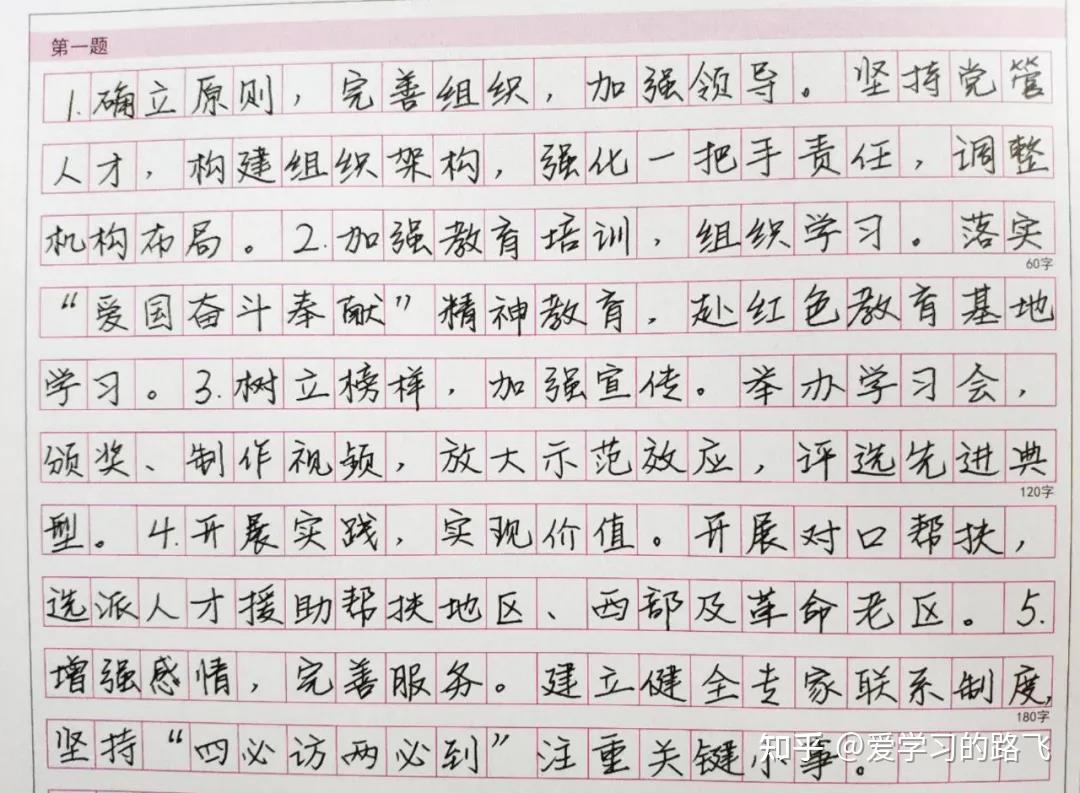 第一题
1.确立原则，完善组织，加强领导。坚持党管
人才，构建组织架构，强化一把手责任，调整
机构布局。2.加强教育培训，组织学习。落实
60字
“爱国奋斗奉献”精神教育，赴红色教育基地
学习。3.树立榜样，加强宣传。举办学习会，
颁奖、制作视频，放大示范效应，评选先进典
120字
型。4.开展实践，实现价值。开展对口帮扶，
选派人才援助帮扶地区、西部及革命老区。5.
增强感情，完善服务。建立健全专家联系制度，
180字
坚持“四必访两必到”注重关键小事。
知乎 @爱学习的路飞